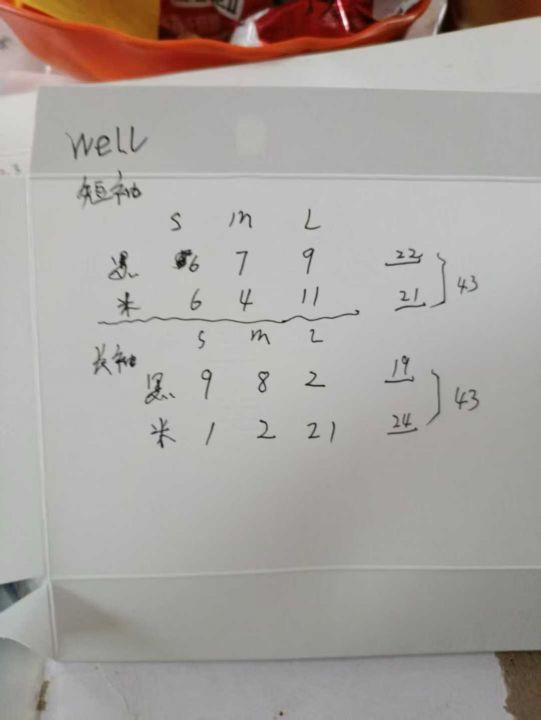 well
短袖
S m L
黑 6 7 9 22
米 6 4 11 21
43
长袖 S m L
黑 9 8 2 19
米 1 2 21 24
43